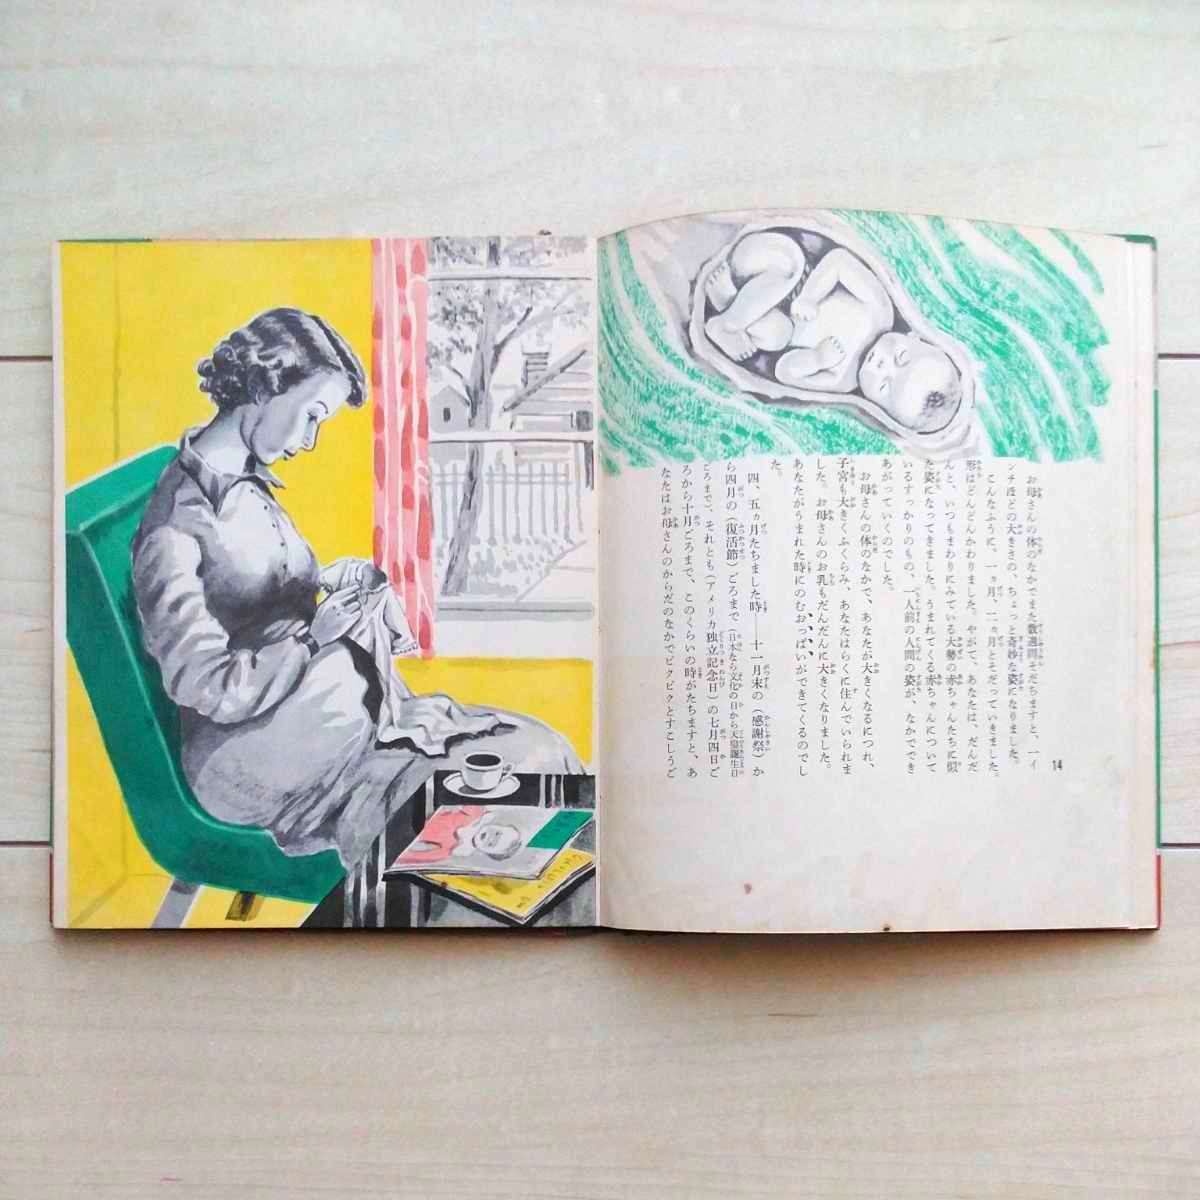 14
お母さんの体のなかでまた数週間そだちますと、一イ
ンチほどの大きさの、ちょっと奇妙な姿になりました。
こんなふうに、一ヵ月、二ヵ月とそだっていきました。
形はどんどんかわりました。やがて、あなたは、だんだ
んと、いつもまわりにみている大勢の赤ちゃんたちに似
た姿になってきました。うまれてくる赤ちゃんについて
いるすっかりのもの、一人前の人間の姿が、なかででき
あがっていくのでした。
お母さんの体のなかで、あなたが大きくなるにつれ、
子宮も大きくふくらみ、あなたはらくに住んでいられま
した。お母さんのお乳もだんだんに大きくなりました。
あなたがうまれた時にのむおっぱいができてくるのでし
た。
四、五ヵ月たちました時――十一月末の（感謝祭）か
ら四月の（復活節）ごろまで（日本なら文化の日から天皇誕生日
ごろまで、それとも（アメリカ独立記念日）の七月四日ご
ろから十月ごろまで、このくらいの時がたちますと、あ
なたはお母さんのからだのなかでピクピクとすこしうご